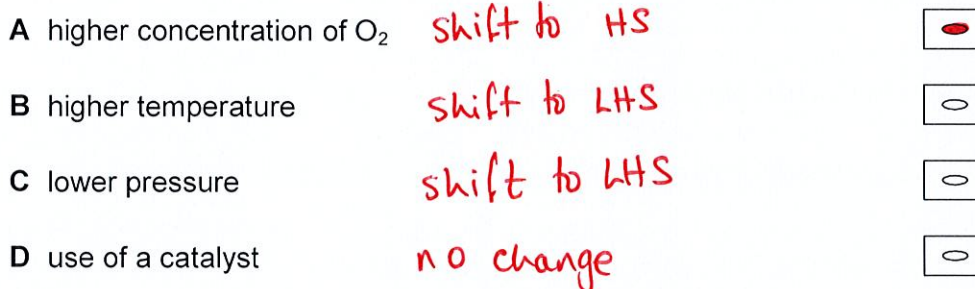 A higher concentration of O₂ shift to HS
B higher temperature shift to LHS
C lower pressure shift to LHS
D use of a catalyst no change